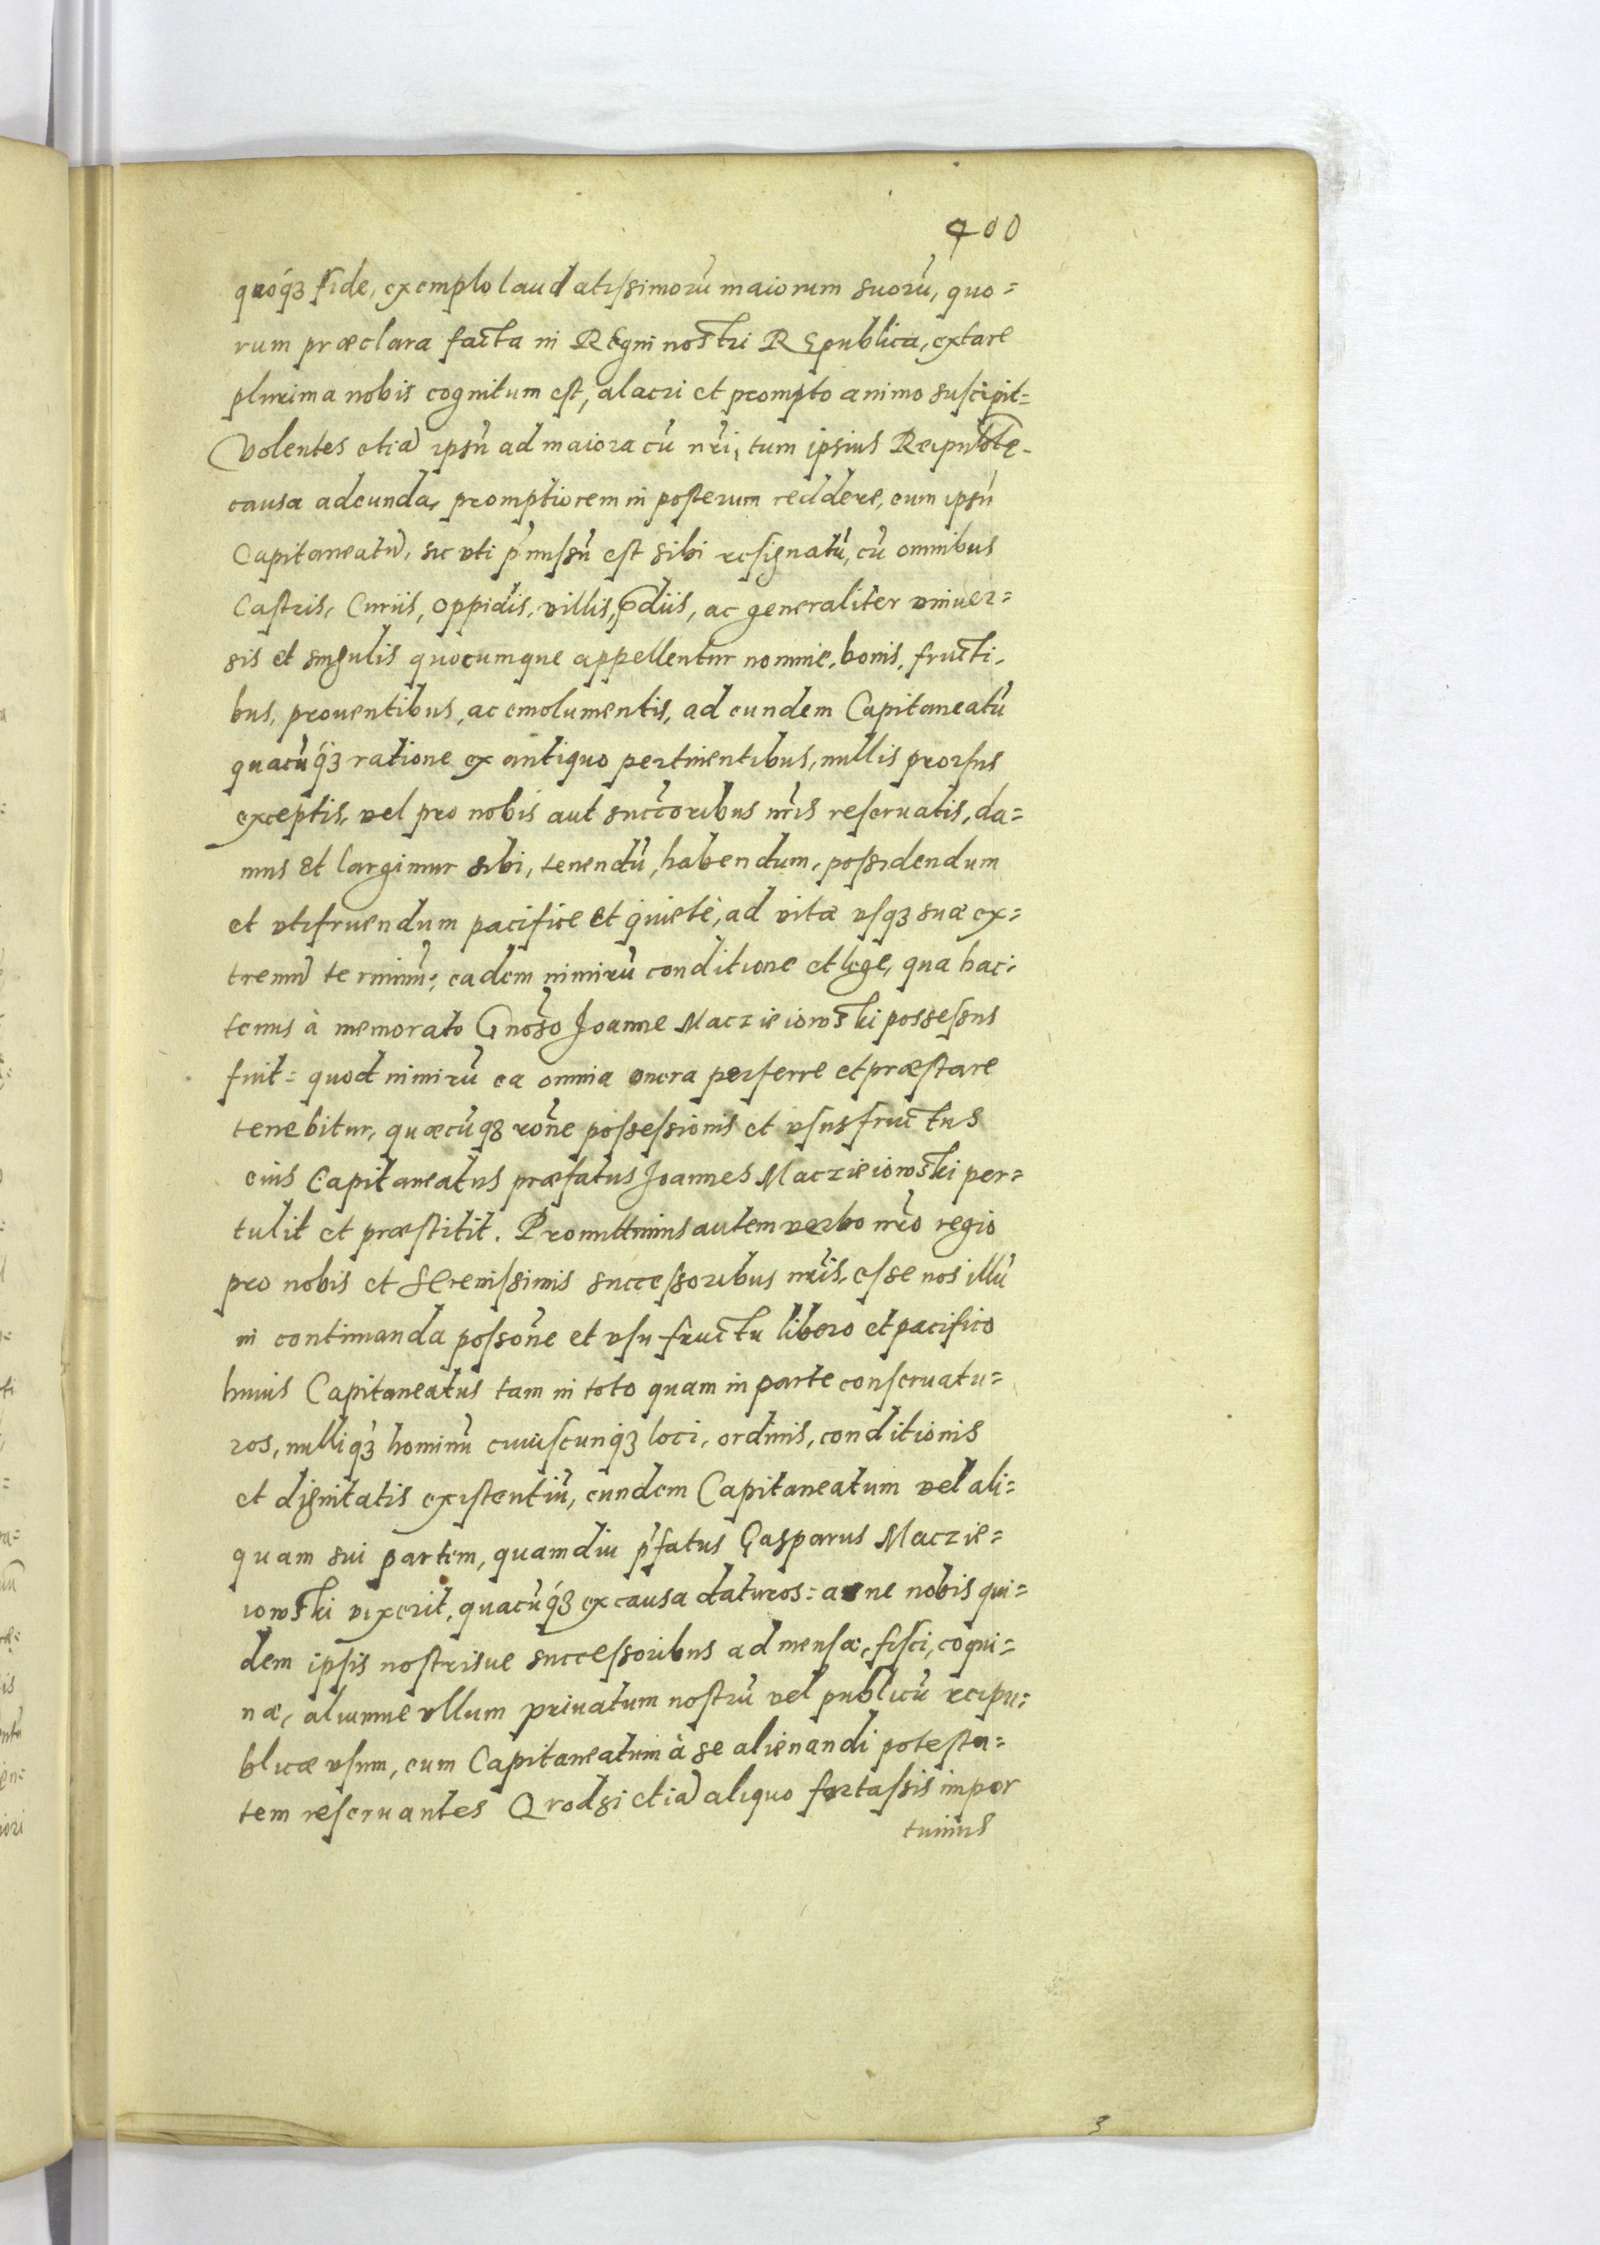 400
quóq₃ fide, exemplo laudatissimorū maiorum suorū, quo=
rum præclara facta in Regni nostri Republica, extare
plurima nobis cognitum est, alacri et prompto animo suscipit=
Volentes etiā ipsū ad maiora cū nr̄i, tum ipsius Reipublicę
causa adeunda, promptiorem in posterum reddere, eum ipsū
Capitaneatū, sic vti p̄missū est sibi resignatū, cū omnibus
Castris, Curiis, oppidis, villis, p̄diis, ac generaliter vniuer=
sis et singulis quocumque appellentur nomine, bonis, fructi,
bus, prouentibus, ac emolumentis, ad eundem Capitaneatū
quacūq₃ ratione ex antiquo pertinentibus, nullis prorsus
exceptis, vel pro nobis aut succōribus nr̄is reseruatis, da=
mus et largimur sibi, tenendū, habendum, possidendum
et vtifruendum pacifice et quietè, ad vitæ vsq₃ suæ ex=
tremū terminū; eadem nimirū conditione et lege, qua hac:
tenus à memorato Gnōso Joanne Maczieiowski possessus
fuit= quod nimirū ea omnia onera perferre et præstare
tenebitur, quæcūq₃ rōne possessionis et vsusfructus
eius Capitaneatus præfatus Joannes Maczieiowski per=
tulit et præstitit. Promittimus autem verbo nr̄o regio
pro nobis et Serenissimis successoribus nr̄is, esse nos illū
in continuanda possōne et vsufructu libero et pacifico
huius Capitaneatus tam in toto quam in parte conseruatu=
ros, nulliq₃ hominū cuiuscunq₃ loci, ordinis, conditionis
et dignitatis existentiū, eundem Capitaneatum vel ali=
quam sui partem, quamdiu p̄fatus Gasparus Maczie=
iowski vixerit, quacūq₃ ex causa daturos: a ne nobis qui=
dem ipsis nostrisue successoribus ad mensæ, fisci, coqui=
næ, aliumue vllum priuatum nostrū vel publicū reipu=
blicæ vsum, eum Capitaneatum à se alienandi potesta=
tem reseruantes Qrodsi etiā aliquo fortassis impor
tunius
3